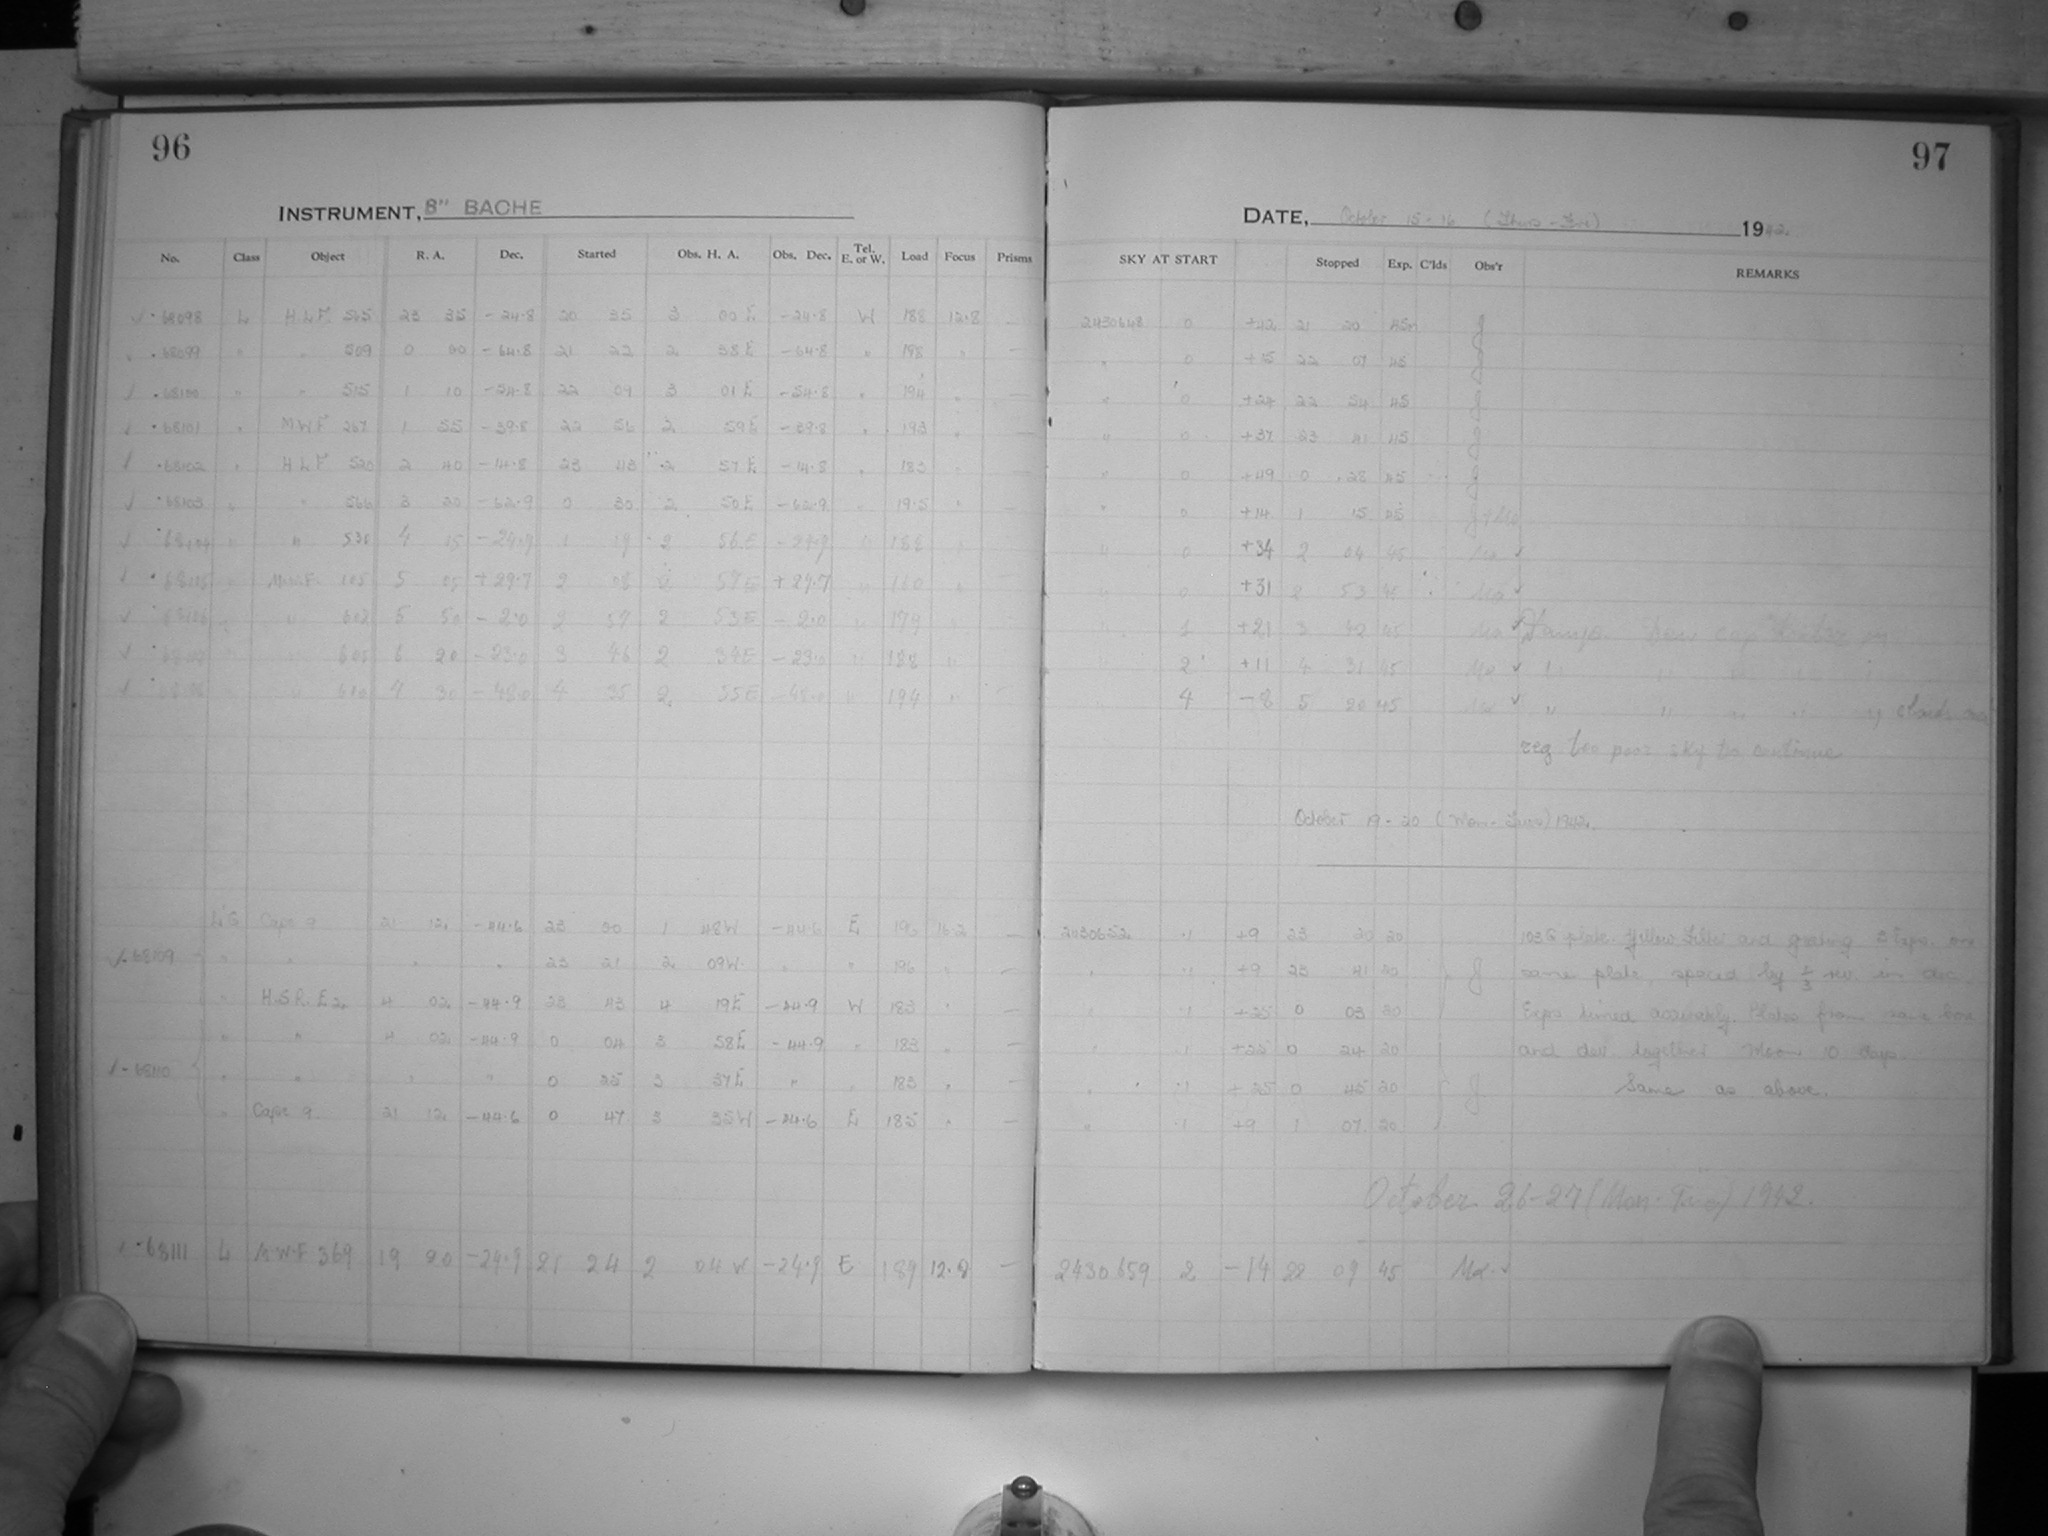 96
INSTRUMENT, 8" BACHE
No. Class Object R. A. Dec. Started Obs. H. A. Obs. Dec. Tel. E. or W. Load Focus Prisms
68098 L H.L.F. 505 23 35 -24.8 20 35 3 00 E -24.8 W 188 12.8 —
68099 " " 509 0 00 -64.8 21 22 2 38 E -64.8 " 198 " —
68100 " " 515 1 10 -54.8 22 09 3 01 E -54.8 " 194 " —
68101 " M.W.F. 267 1 55 -39.8 22 56 2 59 E -39.8 " 193 " —
68102 " H.L.F. 520 2 40 -14.8 23 43 2 57 E -14.8 " 183 "
68103 " " 566 3 20 -62.9 0 30 2 50 E -62.9 " 19.5 " —
" " 530 4 15 -29.9 1 19 2 56 E -29.9 " 188 "
" M.W.F. 5 05 +29.7 2 08 2 57 E +29.7 " 160 "
" " 602 5 50 -2.0 2 57 2 53 E -2.0 " 179 "
" " 605 6 20 -23.0 3 46 2 34 E -23.0 " 188 "
" " 610 7 30 -48.0 4 35 2 55 E -48.0 " 194 "
Cape 9 21 12 -44.6 23 00 1 48 W -44.6 E 196 16.2 —
68109 " " " " 23 21 2 09 W " " 196 " —
" H.S.R. E 2 4 02 -44.9 23 43 4 19 E -44.9 W 183 " —
" " 4 02 -44.9 0 04 3 58 E -44.9 " 183 " —
68110 " " " " 0 25 3 37 E " " 183 " —
" Cape 9 21 12 -44.6 0 47 3 35 W -44.6 E 185 " —
68111 L M.W.F 369 19 20 -24.9 21 24 2 04 W -24.9 E 189 12.8 —
97
DATE, October 15-16 (Thurs-Fri) 1942.
SKY AT START Stopped Exp. C'lds Obs'r REMARKS
2430648 0 +42 21 20 45m J
" 0 +15 22 07 45 J
" 0 +24 22 54 45 J
" 0 +37 23 41 45 J
" 0 +49 0 28 45 J
" 0 +14 1 15 45 J+Ma
" 0 +34 2 04 45 Ma
" 0 +31 2 53 45 Ma
" 1 +21 3 42 45 Ma Damp. Dew cap heater on
" 2 +11 4 31 45 Ma " " " " "
" 4 -8 5 20 45 Ma " " " " " clouds and
reg. too poor sky to continue
October 19-20 (Mon-Tues) 1942.
2430652 .1 +9 23 20 20 103G plate. Yellow filter and grating 3 exps. on
" .1 +9 23 41 20 J same plate, spaced by 1/3 rev. in dec.
" .1 +25 0 03 20 Exps timed accurately. Plates from same box
" .1 +25 0 24 20 and dev. together. Moon 10 days.
" .1 +25 0 45 20 J Same as above.
" .1 +9 1 07 20
October 26-27 (Mon-Tues) 1942.
2430659 2 -14 22 09 45 Ma